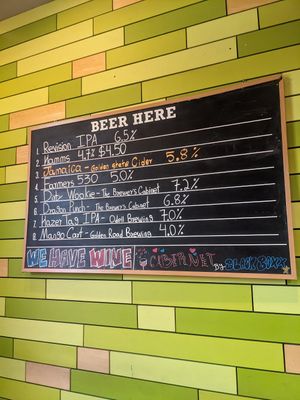 BEER HERE
1. Revision IPA 6.5%
2. Hamms 4.7% $4.50
3. Jamaica - Golden State Cider 5.8%
4. Farmers 530 5.0%
5. Dirty Wookie - The Brewer's Cabinet 7.2%
6. Dragon Punch - The Brewer's Cabinet 6.8%
7. Hazer Tag IPA - Odell Brewing 7.0%
8. Mango Cart - Golden Road Brewing 4.0%
WE HAVE WINE CABERNET BY: BLACK BOX